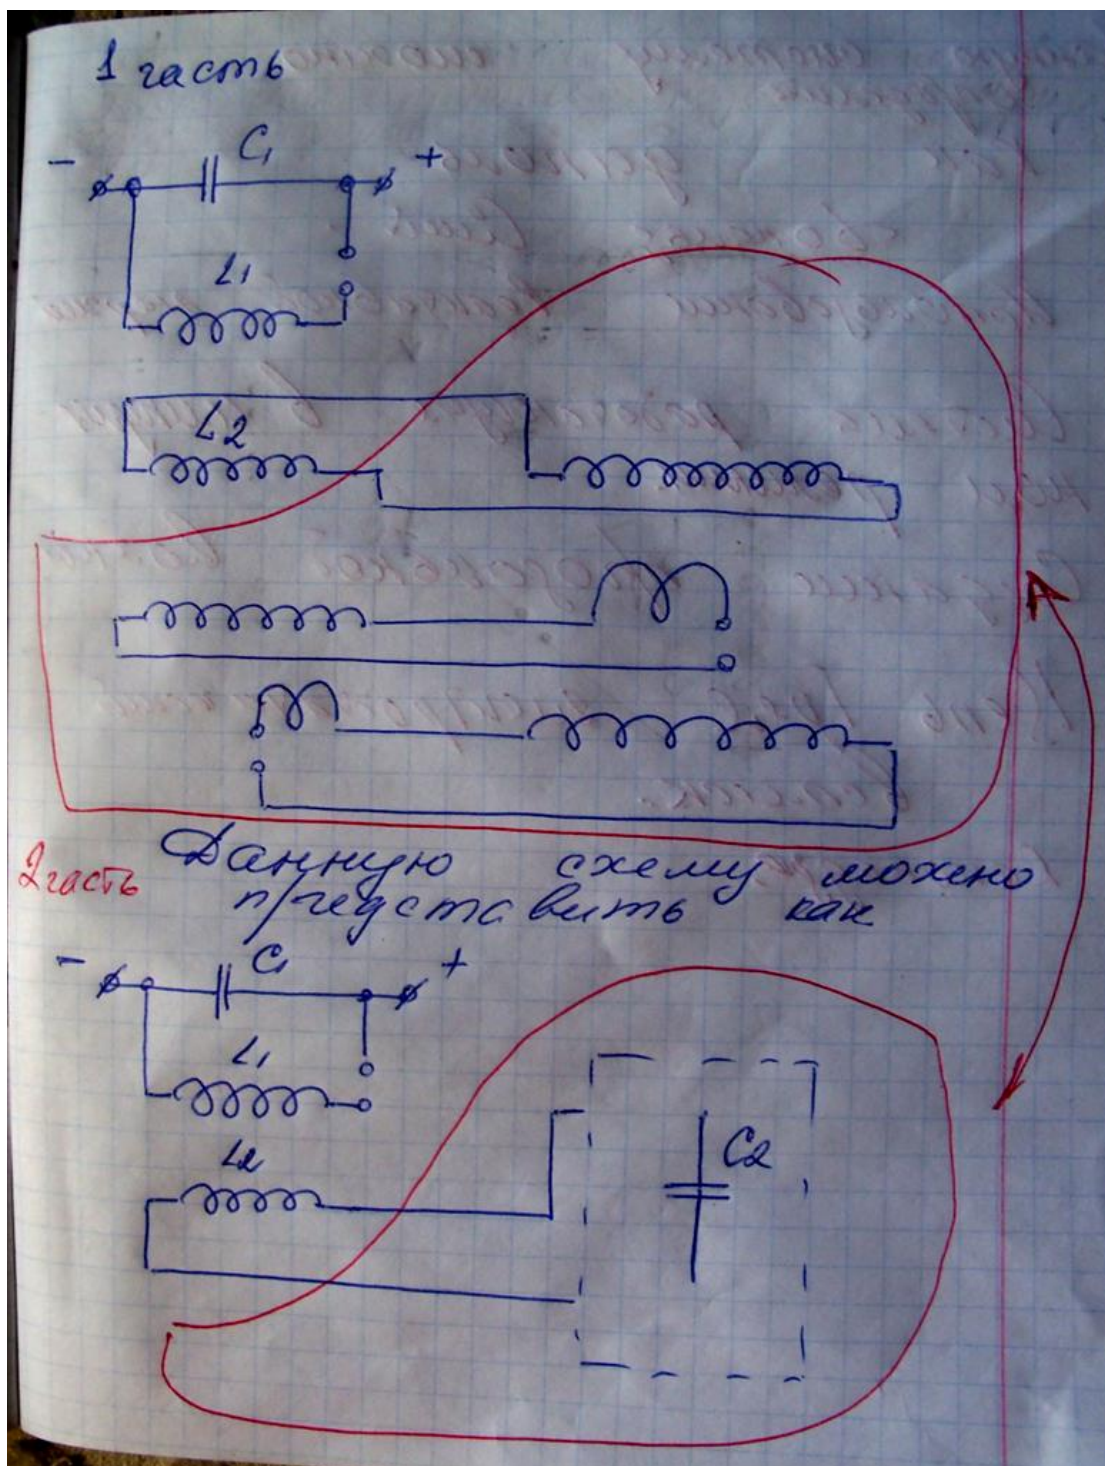 1 часть
- C1 +
L1
L2
2 часть Данную схему можно
представить как
- C1 +
L1
L2
C2